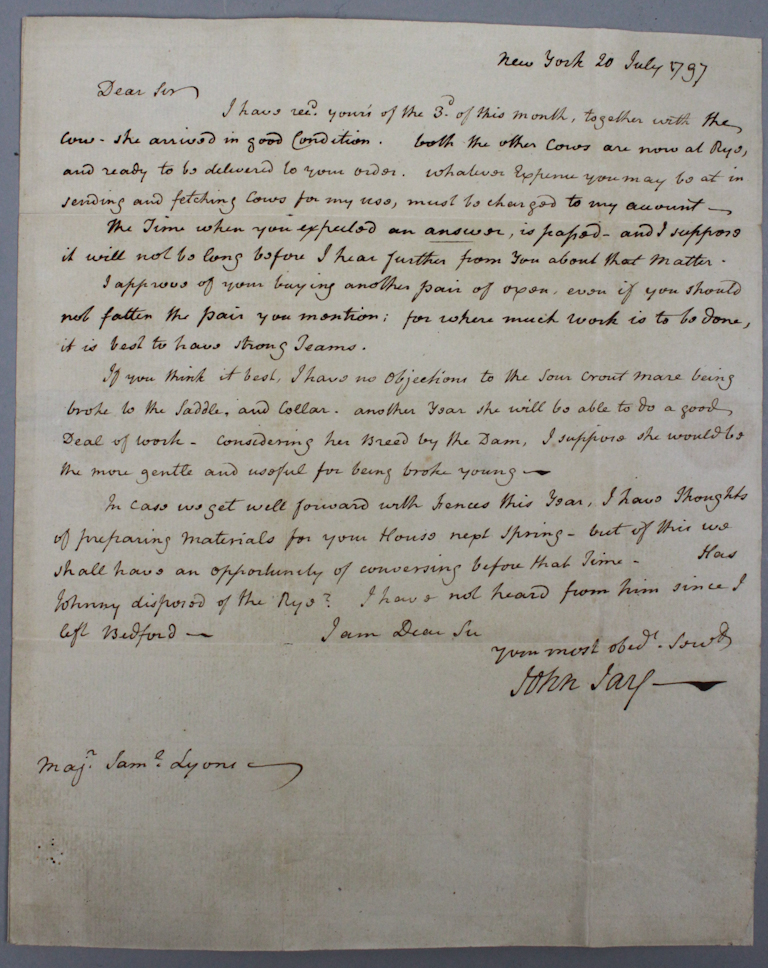 New York 20 July 1797
Dear Sir
I have recd. yours of the 3d. of this month, together with the
Cow - she arrived in good Condition. both the other Cows are now at Rye,
and ready to be delivered to your order. whatever Expence you may be at in
sending and fetching Cows for my use, must be charged to my account —
the Time when you expected an answer, is passed - and I suppose
it will not be long before I hear further from You about that Matter.
I approve of your buying another pair of oxen, even if you should
not fatten the pair you mention; for where much work is to be done,
it is best to have strong Teams.
If you think it best, I have no Objections to the Sour Crout mare being
broke to the Saddle, and Collar. another Year she will be able to do a good
Deal of work - Considering her Breed by the Dam, I suppose she would be
the more gentle and useful for being broke young —
In case we get well forward with Fences this Year, I have Thoughts
of preparing Materials for your House next Spring - but of this we
shall have an opportunity of conversing before that Time - Has
Johnny disposed of the Rye? I have not heard from him since I
left Bedford — I am Dear Sir
your most obedt. Servt
John Jay —
Majr. Saml. Lyons